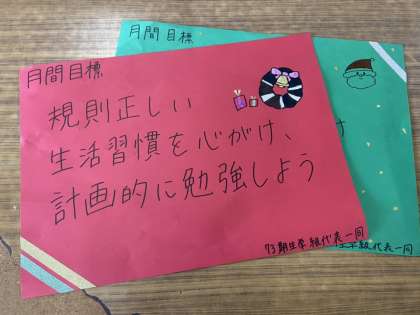 月間目標
規則正しい
生活習慣を心がけ、
計画的に勉強しよう
73期生学級代表一同
月間目標
け
生学級代表一同